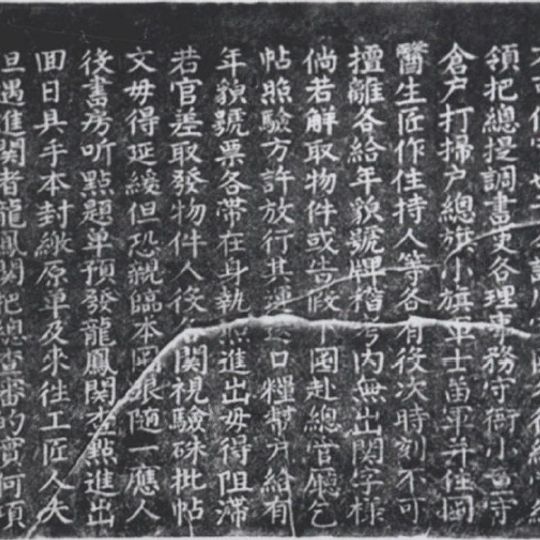 領把總提調書吏各理事務守衙小童守
倉户打掃户總旗小旗軍士苗軍并住岡
醫生匠作住持人等各有役次時刻不可
擅離各給年貌號牌稽考内無出関字樣
倘若解取物件或告假下岡赴總官廳乞
帖照驗方許放行其運送口糧幇户給有
年貌號票各帶在身執照進出毋得阻滯
若官差取發物件人役各関視驗硃批帖
文毋得延緩但恐親臨本岡跟随一應人
後書房听點題单預發龍鳳関查點進出
回日具手本封繳原单及来往工匠人夫
旦遇進関者龍鳳関把總查審的實何項